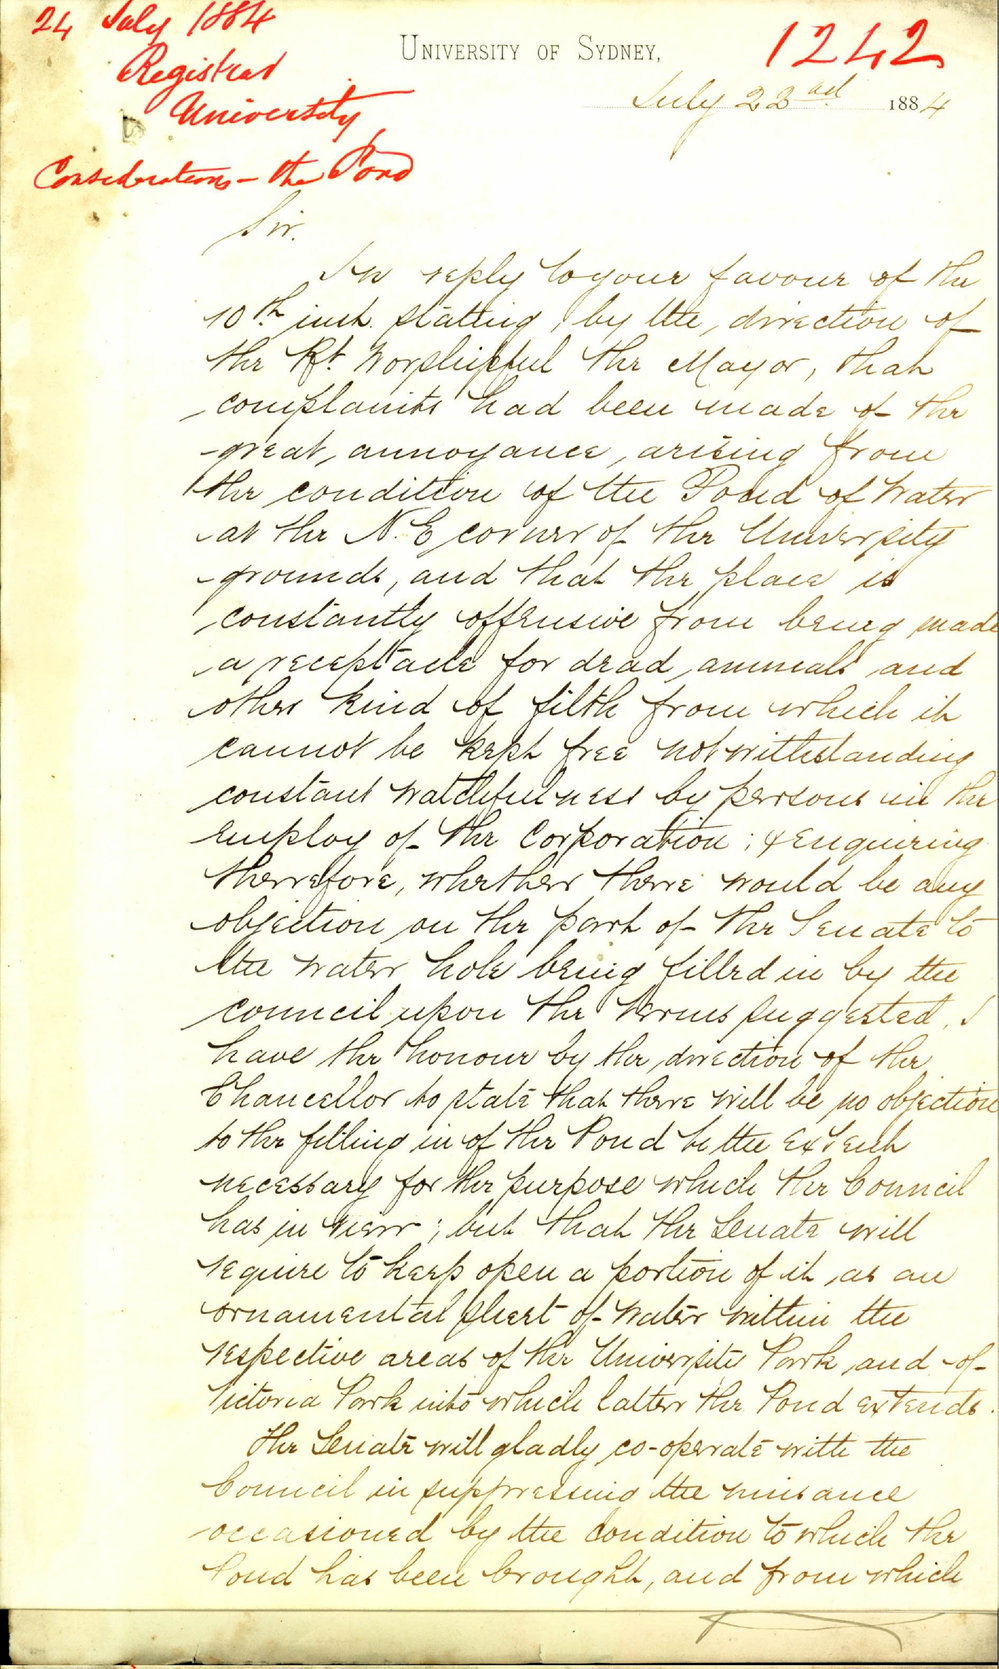 24 July 1884
Registrar
University
Considerations - the Pond
1242
UNIVERSITY OF SYDNEY,
July 23rd 1884
Sir.
In reply to your favour of the
10th inst. stating, by the, direction of
the Rt. Worshipful the Mayor, that
complaints had been made of the
great, annoyance, arising from
the condition of the Pond of Water
at the N. E corner of the University
grounds, and that the place is
constantly offensive from being made
a receptacle for dead, animals and
other kind of filth from which it
cannot be kept free notwithstanding
constant watchfulness by persons in the
employ of the Corporation; & enquiring
therefore, whether there would be any
objection on the part of the Senate to
the water hole being filled in by the
council upon the terms suggested, I
have the honour by the, direction of the
Chancellor to state that there will be no objection
to the filling in of the Pond to the extent
necessary for the purpose which the Council
has in view; but that the Senate will
require to keep open a portion of it, as an
ornamental sheet of water within the
respective areas of the University Park, and of
Victoria Park into which latter the Pond extends.
The Senate will gladly co-operate with the
Council in suppressing the nuisance
occasioned by the condition to which the
Pond has been brought, and from which